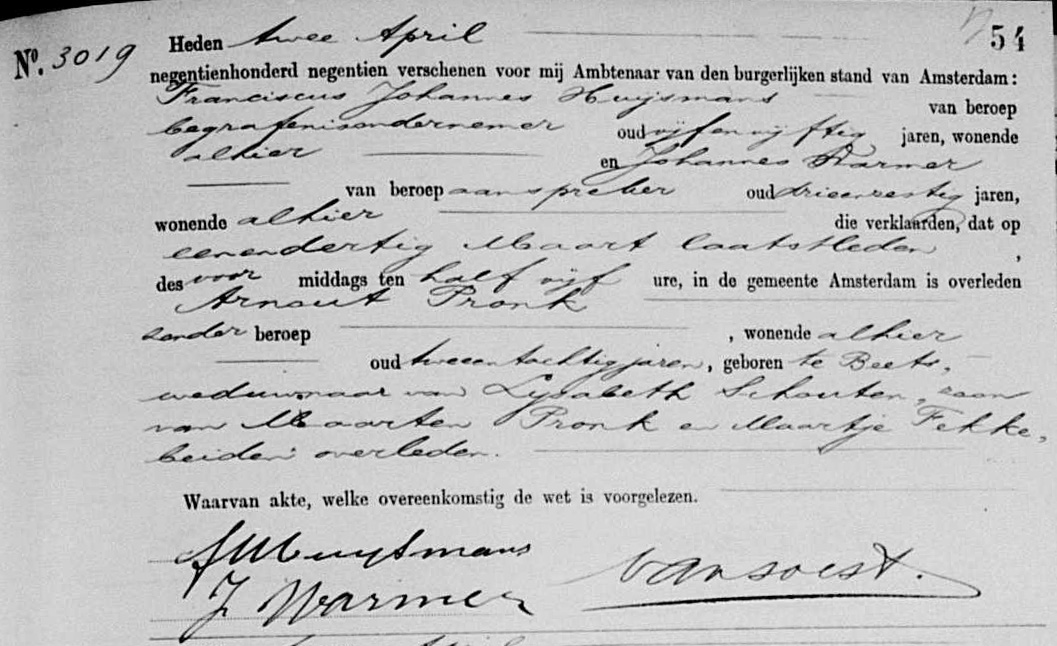 54
No. 3019 Heden twee April
negentienhonderd negentien verschenen voor mij Ambtenaar van den burgerlijken stand van Amsterdam:
Franciscus Johannes Huijsmans van beroep
begrafenisondernemer oud vijfenvijftig jaren, wonende
alhier en Johannes Warmer
van beroep aanspreker oud drieenzestig jaren,
wonende alhier die verklaarden, dat op
eenendertig Maart laatstleden,
des voor middags ten half vijf ure, in de gemeente Amsterdam is overleden
Arnout Pronk
zonder beroep, wonende alhier
oud tweeentachtig jaren, geboren te Beets,
weduwnaar van Lysabeth Schouten, zoon
van Maarten Pronk en Maartje Fekke,
beiden overleden.
Waarvan akte, welke overeenkomstig de wet is voorgelezen.
Huysmans
J Warmer
van Soest.